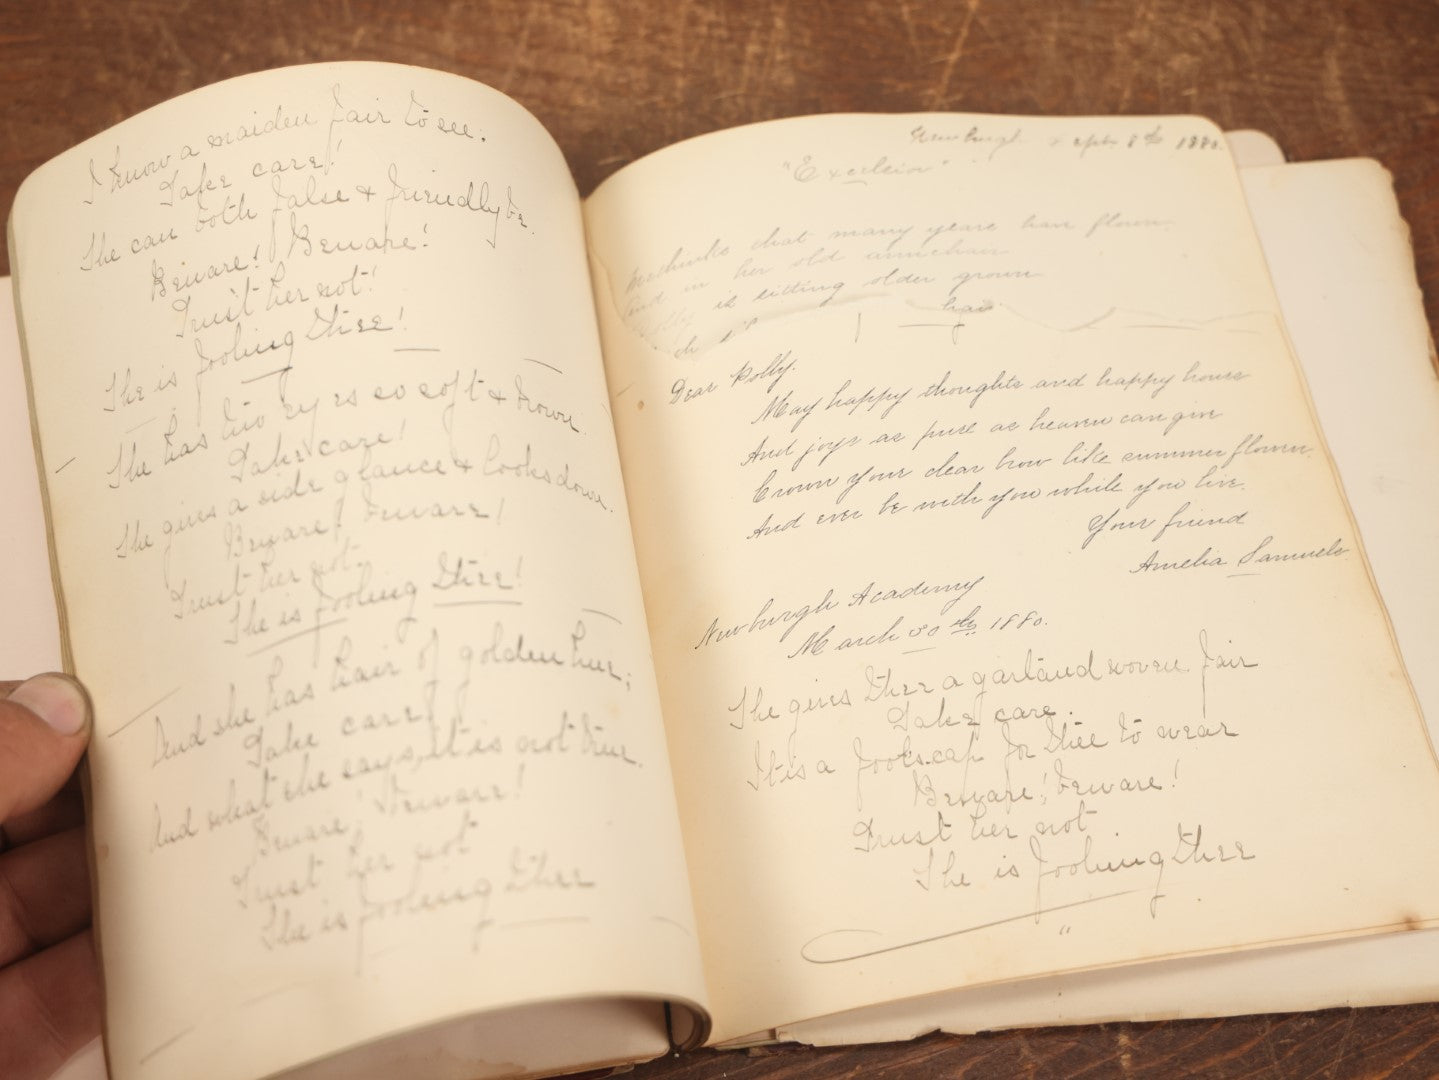 I know a maiden fair to see.
Take care!
She can both false & friendly be.
Beware! Beware!
Trust her not!
She is fooling thee!
She has two eyes so soft & brown.
Take care!
She gives a side glance & looks down.
Beware! beware!
Trust her not.
She is fooling thee!
And she has hair of golden hue;
Take care!
And what she says, it is not true.
Beware! beware!
Trust her not
She is fooling thee
Newburgh Sept 8th 1880.
"Excelsior"
Methinks that many years have flown,
And in her old armchair
Polly is sitting older grown
hair
Dear Polly.
May happy thoughts and happy hours
And joys as pure as heaven can give
Crown your dear brow like summer flowers.
And ever be with you while you live.
Your friend
Amelia Samuels.
Newburgh Academy
March 30th 1880.
She gives thee a garland woven fair
Take care.
It is a fools-cap for thee to wear
Beware! beware!
Trust her not.
She is fooling thee